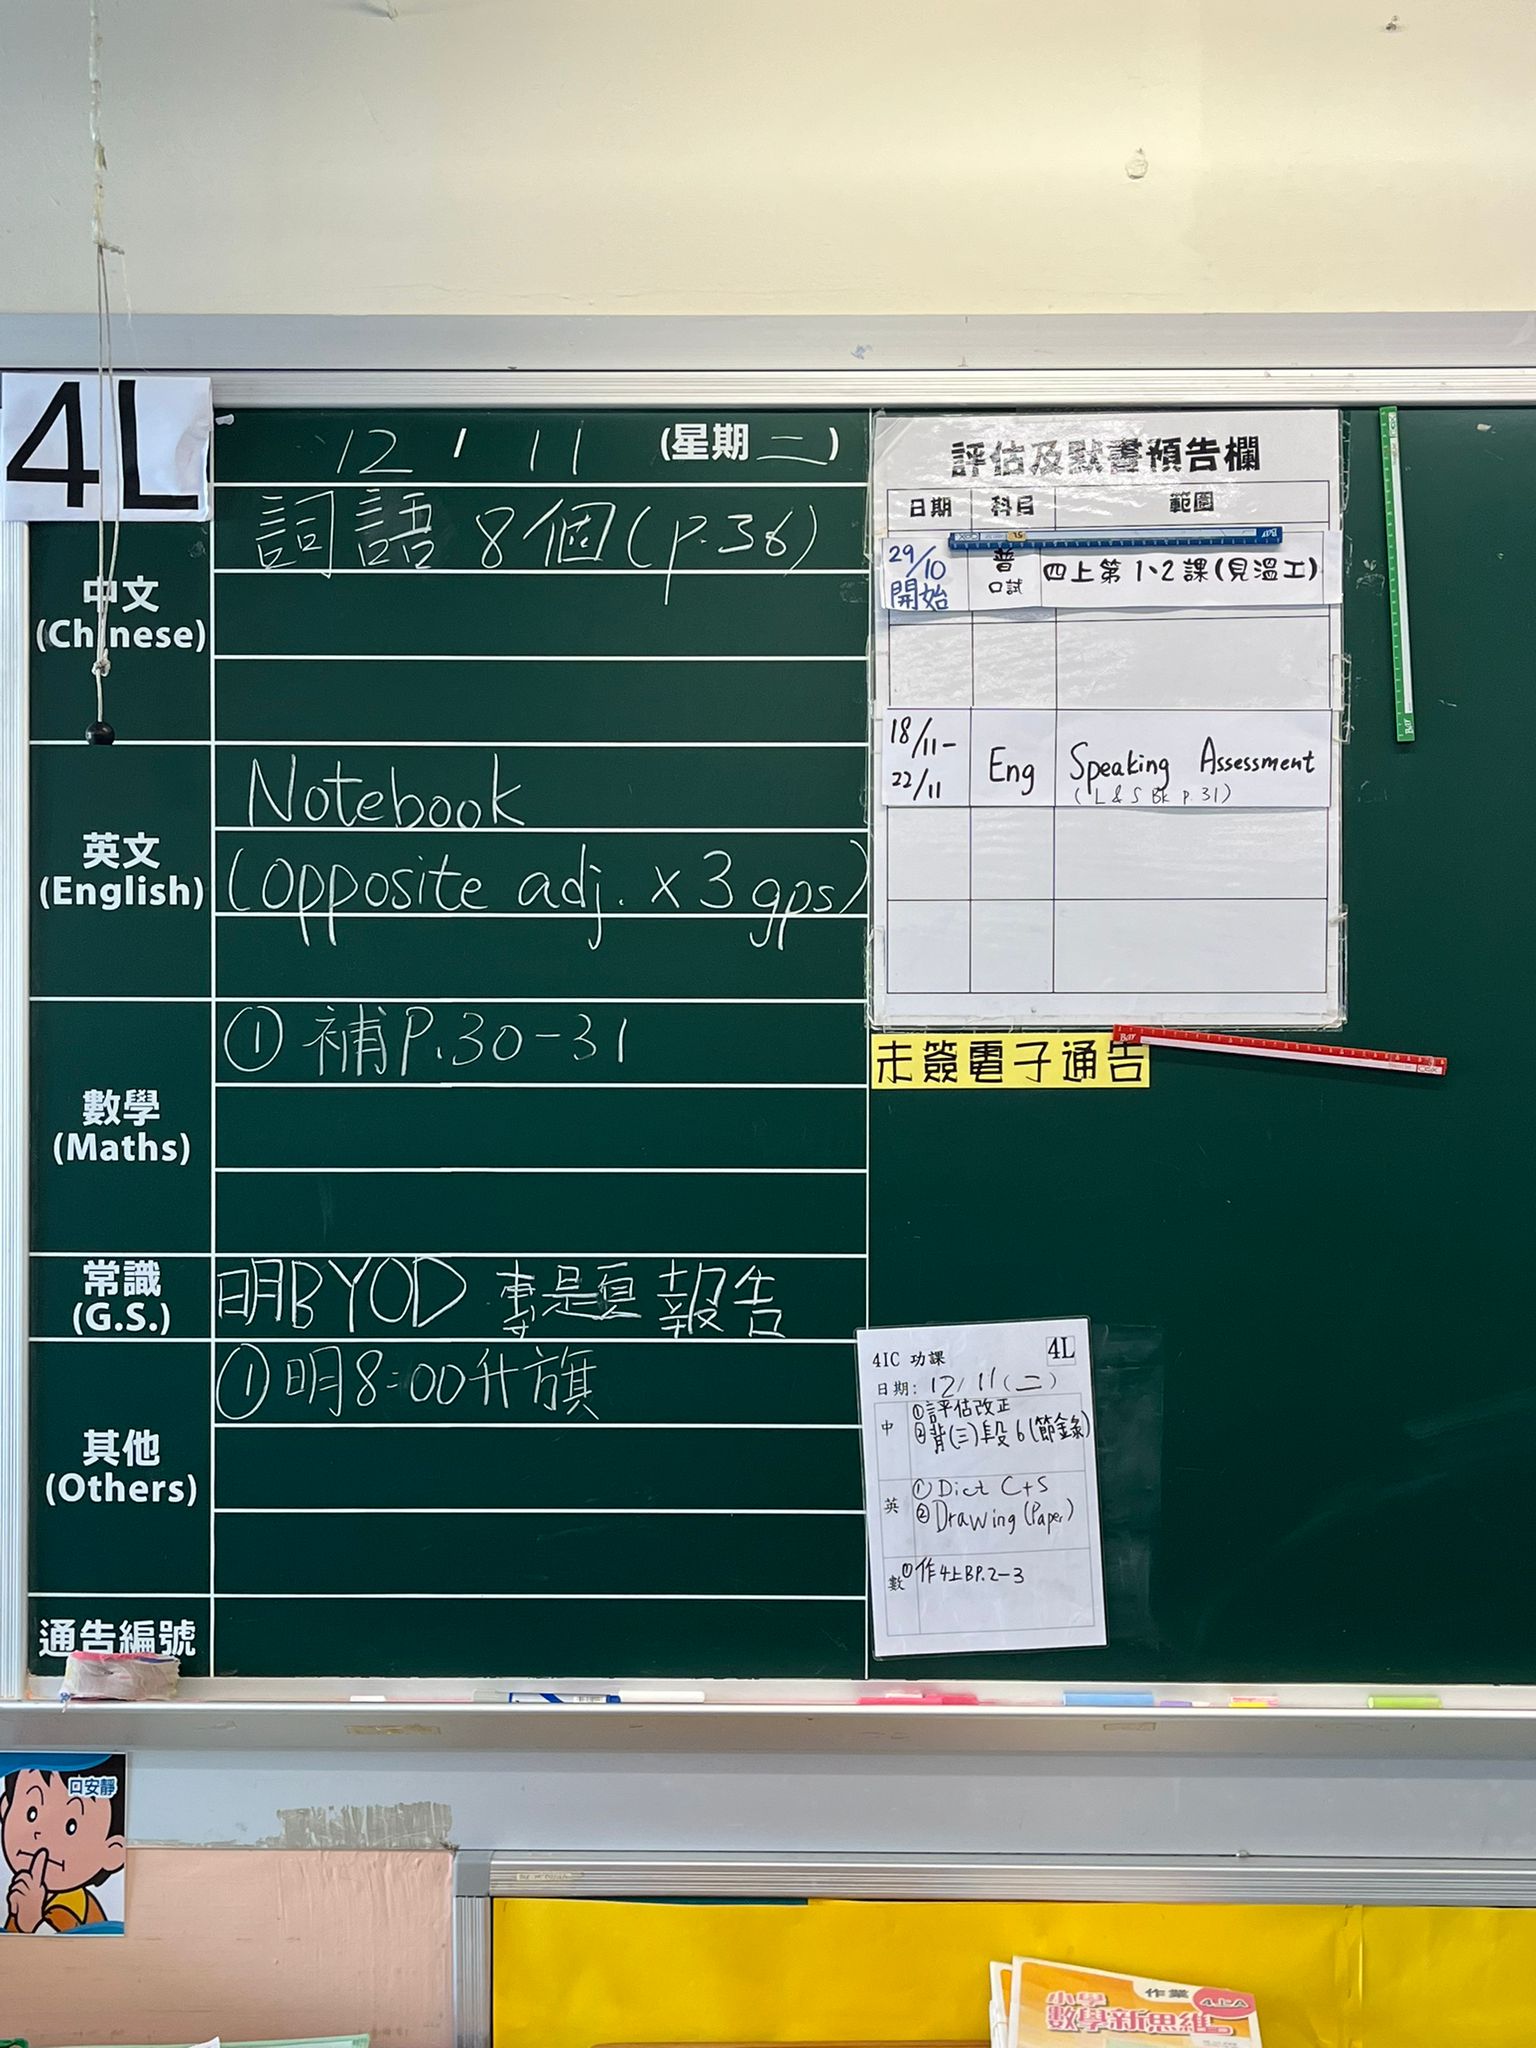 4L
12 / 11 (星期 二)
中文
(Chinese)
詞語 8個 (p.36)
英文
(English)
Notebook
(opposite adj. x 3 gps)
數學
(Maths)
① 補P.30-31
常識
(G.S.)
明BYOD 專題報告
其他
(Others)
① 明8:00升旗
通告編號
評估及默書預告欄
日期 科目 範圍
29/10 開始 普 口試 四上第1、2課(見溫工)
18/11-22/11 Eng Speaking Assessment
(L & S Bk p.31)
未簽電子通告
4IC 功課 4L
日期: 12/11(二)
中 ①評估改正
②背(三)段6(節錄)
英 ①Dict C+S
②Drawing (Paper)
數 ①作4上BP.2-3
口安靜
作業 4上A
小學
數學新思維